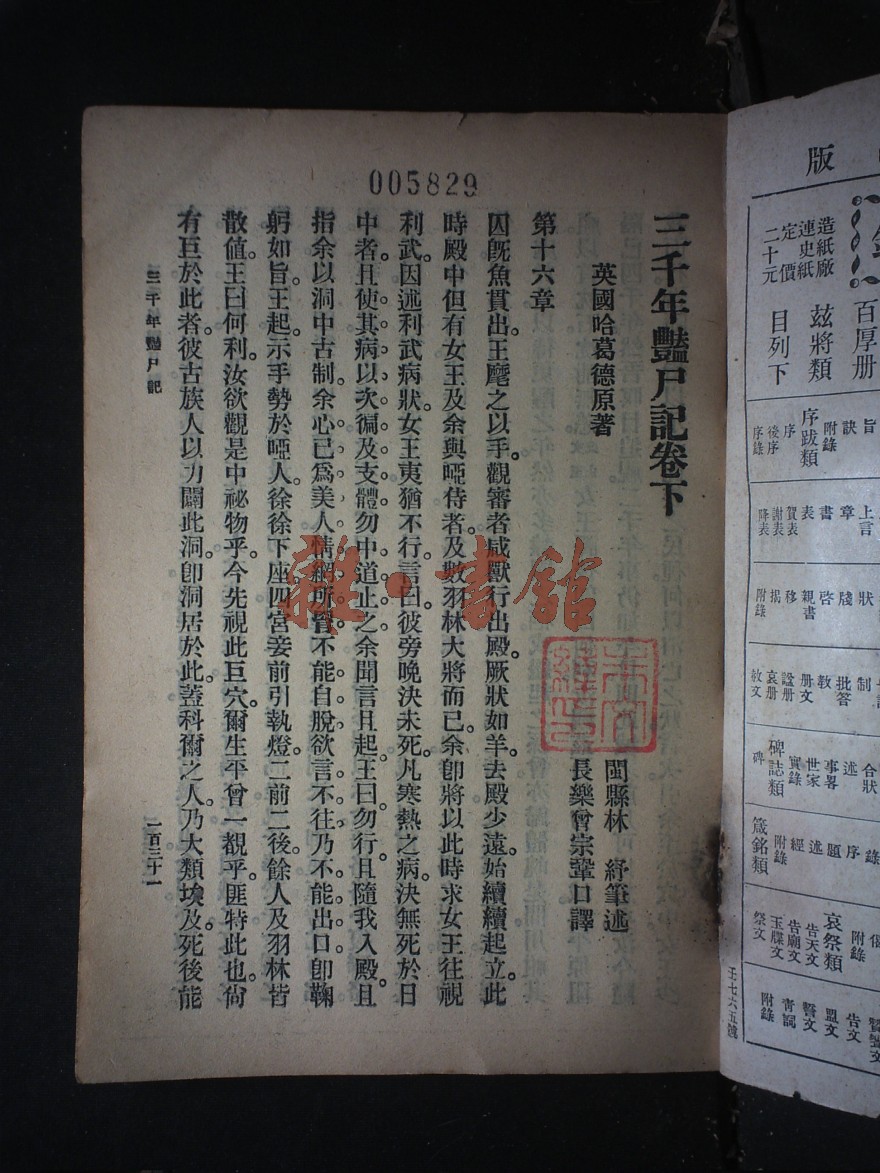 005829
三千年豔尸記卷下
英國哈葛德原著
閩縣林　紓筆述
長樂曾宗鞏口譯
第十六章
囚旣魚貫出。王麾之以手。觀審者咸獸行出殿。厥狀如羊。去殿少遠。始續續起立。此
時殿中但有女王及余與啞侍者。及數羽林大將而已。余卽將以此時求女王往視
利武。因述利武病狀。女王夷猶不行。言曰。彼旁晚決未死。凡寒熱之病。決無死於日
中者。且使其病以次徧及支體。勿中道止之。余聞言且起。王曰。勿行。且隨我入殿。且
指余以洞中古制。余心已爲美人情網所𦌾。不能自脫。欲言不往。乃不能出口。卽鞠
躬如旨。王起。示手勢於啞人。徐徐下座。四宮妾前引執燈。二前二後。餘人及羽林皆
散值。王曰。何利。汝欲觀是中祕物乎。今先視此巨穴。爾生平曾一覩乎。匪特此也。尙
有巨於此者。彼古族人以力闢此洞。卽洞居於此。蓋科爾之人。乃大類埃及。死後能
三千年豔尸記
一百三十一
雜·書館
版
造紙廠
連史紙
定價
二十元
茲將類
目列下
百厚册
序跋類
序
後序
序錄
附錄
訣
旨
上言
章
書
表
賀表
謝表
降表
狀
牋
啓
親書
移
揭
附錄
制
批答
敎
册文
諡册
哀册
赦文
合狀
述
事畧
世家
實錄
碑誌類
碑
序
題
述
經
附錄
箴銘類
附錄
哀祭類
告天文
告廟文
玉牒文
祭文
告文
盟文
誓文
靑詞
附錄
壬七六五號